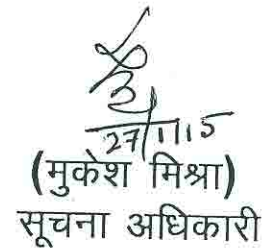 27/11/15
(मुकेश मिश्रा)
सूचना अधिकारी